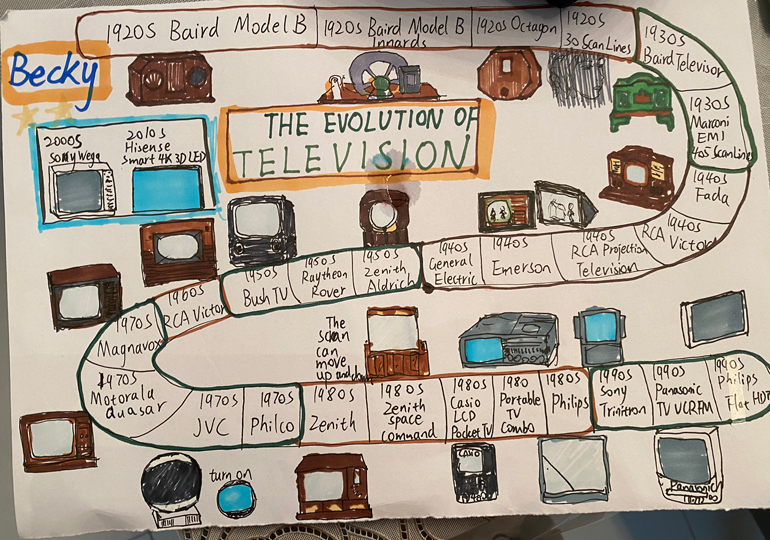 1920s Baird Model B
1920s Baird Model B
Innards
1920s Octagon
1920s
30 Scan Lines
1930s
Baird Televisor
1930s
Marconi
EMI
405 Scan Lines
1940s
Fada
1940s
RCA Victor
1940s
RCA Projection
Television
1940s
Emerson
1940s
General
Electric
1950s
Zenith
Aldrich
1950s
Raytheon
Rover
1950s
Bush TV
1960s
RCA Victor
1970s
Magnavox
1970s
Motorala
Quasar
1970s
JVC
1970s
Philco
1980s
Zenith
1980s
Zenith
space
command
1980s
Casio
LCD
Pocket TV
1980
Portable
TV
Combo
1980s
Philips
1990s
Sony
Trinitron
1990s
Panasonic
TV VCR FM
1990s
Philips
Flat HDT
Becky
THE EVOLUTION OF
TELEVISION
2000s
Sony Wega
2010s
Hisense
Smart 4K 3D LED
The
scran
can
move
up and down
turn on
CASIO
Panasonic